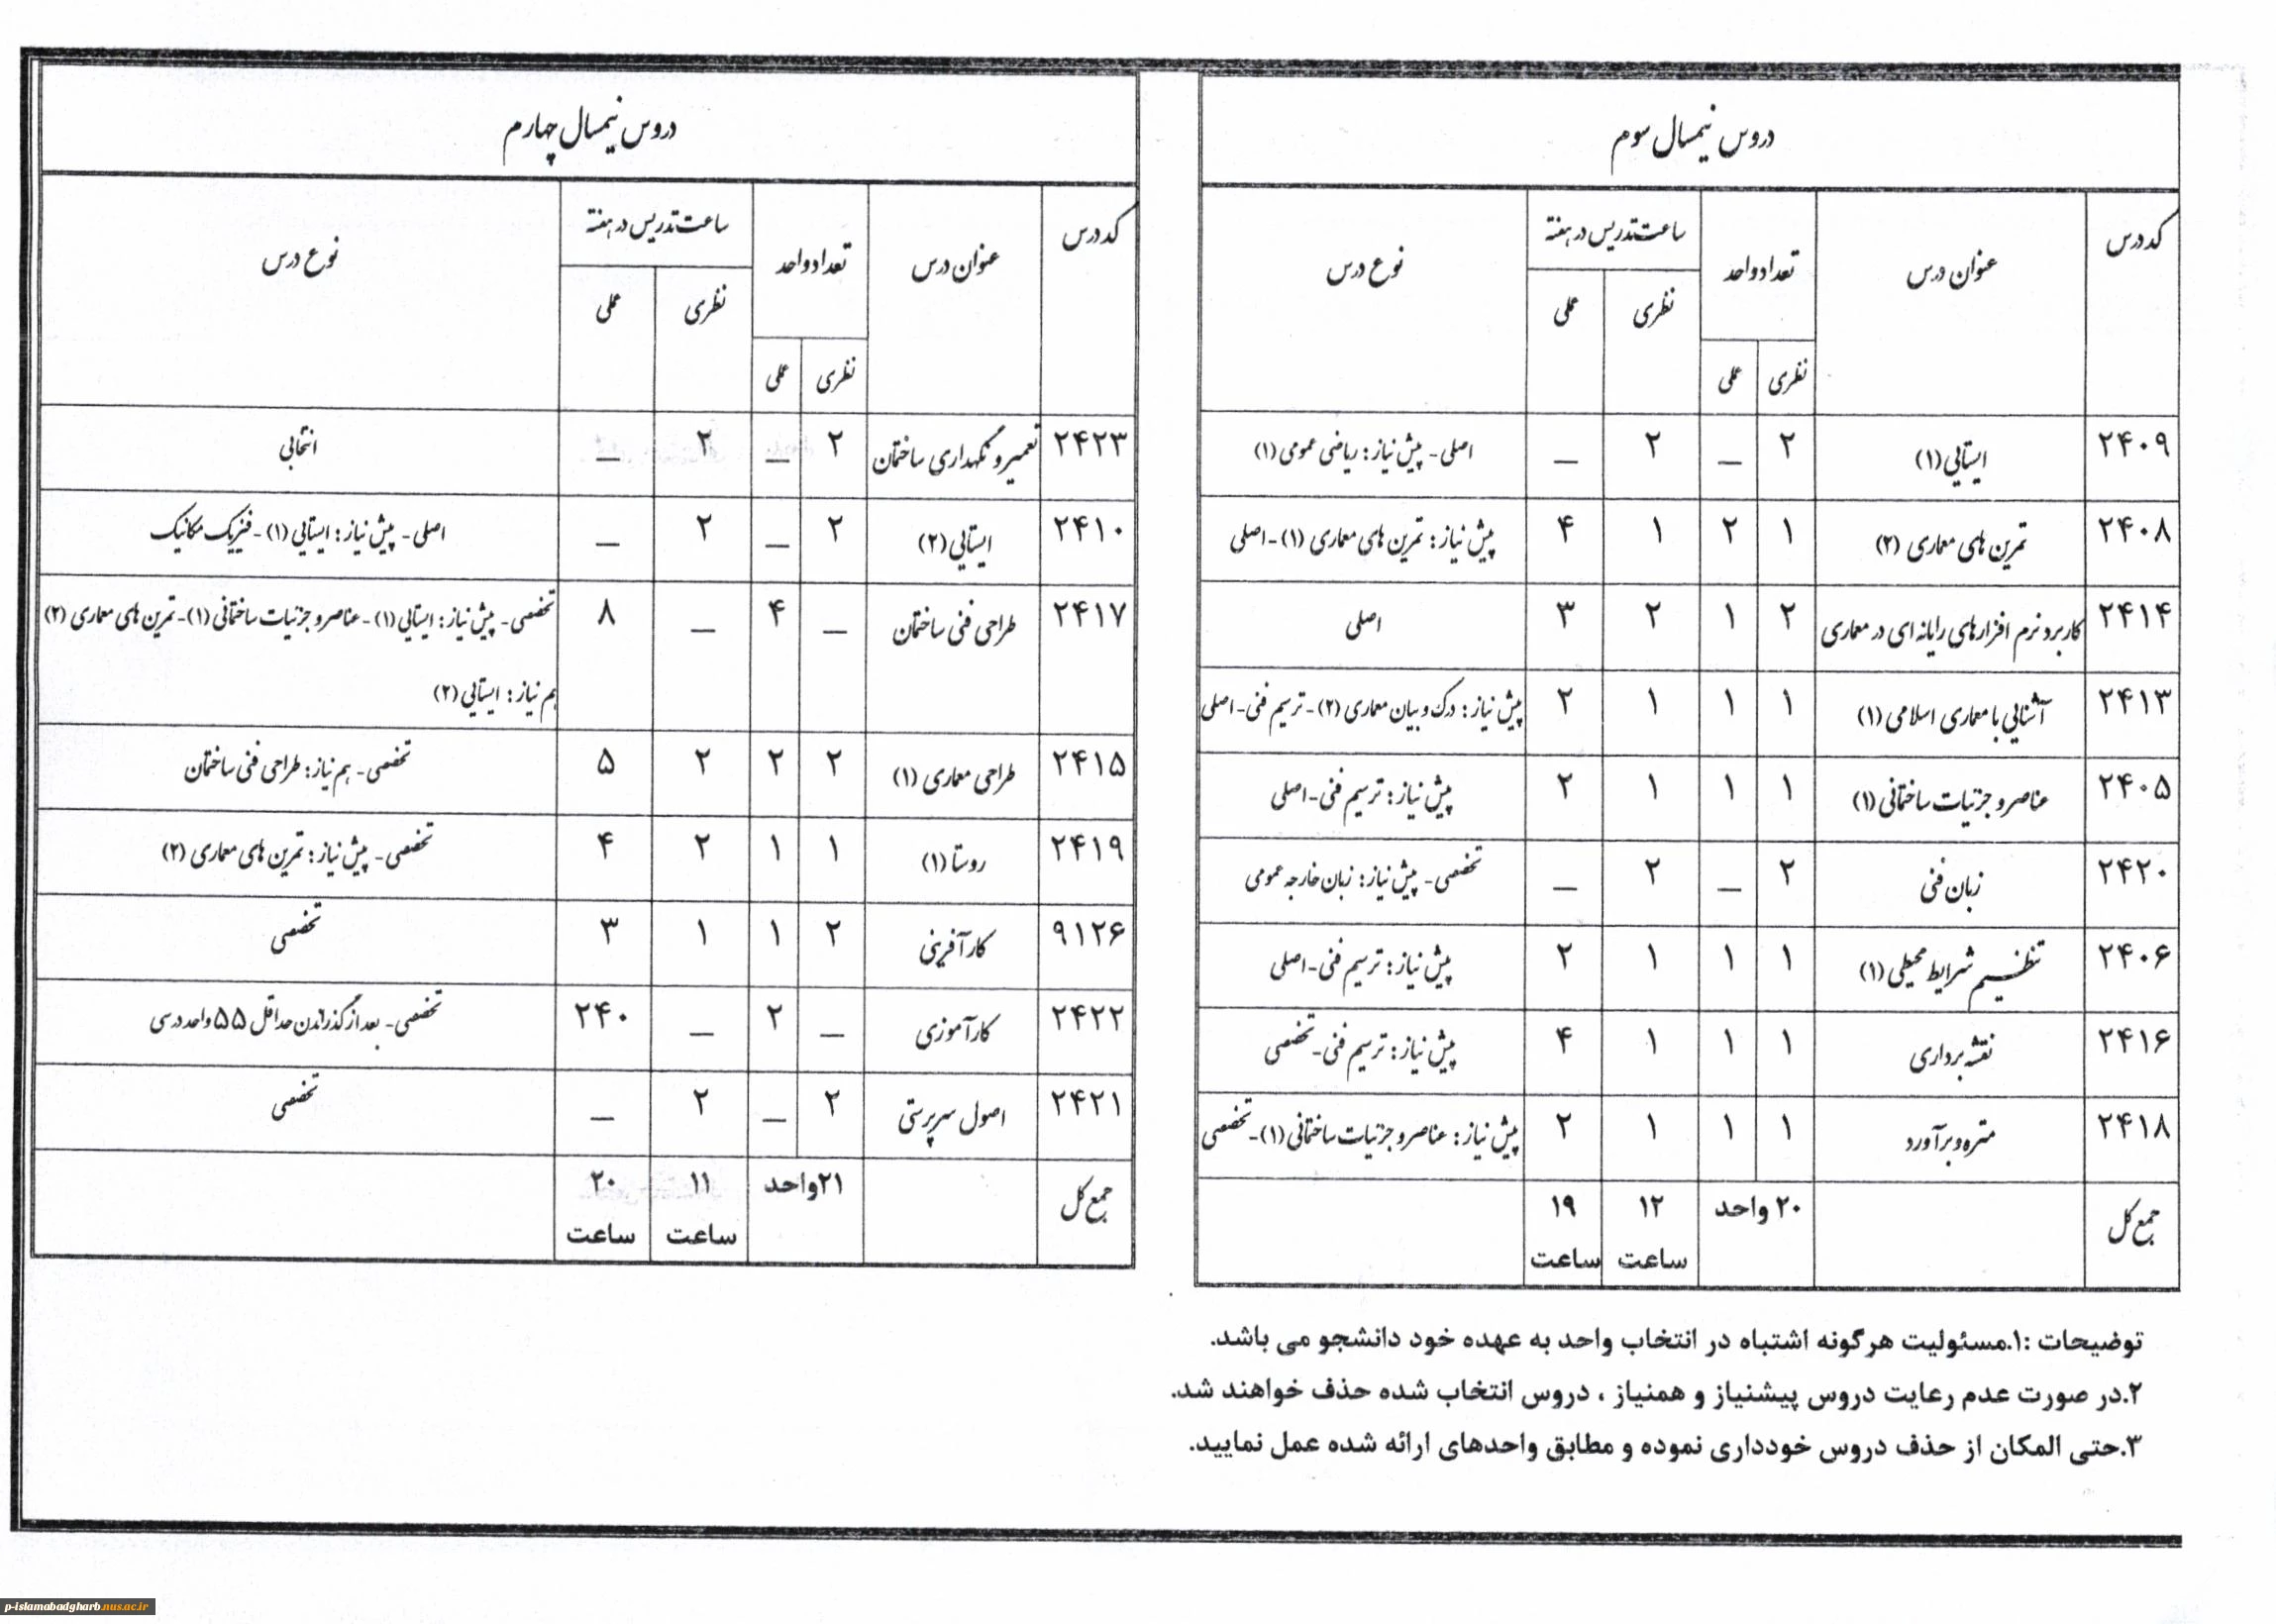 دروس نیمسال سوم
کد درس | عنوان درس | تعداد واحد | ساعت تدریس در هفته | نوع درس
نظری | عملی | نظری | عملی
۲۴۰۹ | ایستایی (۱) | ۲ | _ | ۲ | _ | اصلی - پیش نیاز : ریاضی عمومی (۱)
۲۴۰۸ | تمرین های معماری (۲) | ۱ | ۲ | ۱ | ۴ | پیش نیاز : تمرین های معماری (۱) - اصلی
۲۴۱۴ | کاربرد نرم افزارهای رایانه ای در معماری | ۲ | ۱ | ۲ | ۳ | اصلی
۲۴۱۳ | آشنایی با معماری اسلامی (۱) | ۱ | ۱ | ۱ | ۲ | پیش نیاز : درک و بیان معماری (۲) - ترسیم فنی - اصلی
۲۴۰۵ | عناصر و جزئیات ساختمانی (۱) | ۱ | ۱ | ۱ | ۲ | پیش نیاز : ترسیم فنی - اصلی
۲۴۲۰ | زبان فنی | ۲ | _ | ۲ | _ | تخصصی - پیش نیاز : زبان خارجه عمومی
۲۴۰۶ | تنظیم شرایط محیطی (۱) | ۱ | ۱ | ۱ | ۲ | پیش نیاز : ترسیم فنی - اصلی
۲۴۱۶ | نقشه برداری | ۱ | ۱ | ۱ | ۴ | پیش نیاز : ترسیم فنی - تخصصی
۲۴۱۸ | متره و برآورد | ۱ | ۱ | ۱ | ۲ | پیش نیاز : عناصر و جزئیات ساختمانی (۱) - تخصصی
جمع کل | ۲۰ واحد | ۱۲ ساعت | ۱۹ ساعت
دروس نیمسال چهارم
کد درس | عنوان درس | تعداد واحد | ساعت تدریس در هفته | نوع درس
نظری | عملی | نظری | عملی
۲۴۲۳ | تعمیر و نگهداری ساختمان | ۲ | _ | ۲ | _ | انتخابی
۲۴۱۰ | ایستایی (۲) | ۲ | _ | ۲ | _ | اصلی - پیش نیاز : ایستایی (۱) - فیزیک مکانیک
۲۴۱۷ | طراحی فنی ساختمان | _ | ۴ | _ | ۸ | تخصصی - پیش نیاز : ایستایی (۱) - عناصر و جزئیات ساختمانی (۱) - تمرین های معماری (۲)
هم نیاز : ایستایی (۲)
۲۴۱۵ | طراحی معماری (۱) | ۲ | ۲ | ۲ | ۵ | تخصصی - هم نیاز : طراحی فنی ساختمان
۲۴۱۹ | روستا (۱) | ۱ | ۱ | ۲ | ۴ | تخصصی - پیش نیاز : تمرین های معماری (۲)
۹۱۲۶ | کارآفرینی | ۲ | ۱ | ۱ | ۳ | تخصصی
۲۴۲۲ | کارآموزی | _ | ۲ | _ | ۲۴۰ | تخصصی - بعد از گذراندن حداقل ۵۵ واحد درسی
۲۴۲۱ | اصول سرپرستی | ۲ | _ | ۲ | _ | تخصصی
جمع کل | ۲۱ واحد | ۱۱ ساعت | ۲۰ ساعت
توضیحات :۱.مسئولیت هرگونه اشتباه در انتخاب واحد به عهده خود دانشجو می باشد.
۲.در صورت عدم رعایت دروس پیشنیاز و همنیاز ، دروس انتخاب شده حذف خواهند شد.
۳.حتی المکان از حذف دروس خودداری نموده و مطابق واحدهای ارائه شده عمل نمایید.
p-islamabadgharb.nus.ac.ir